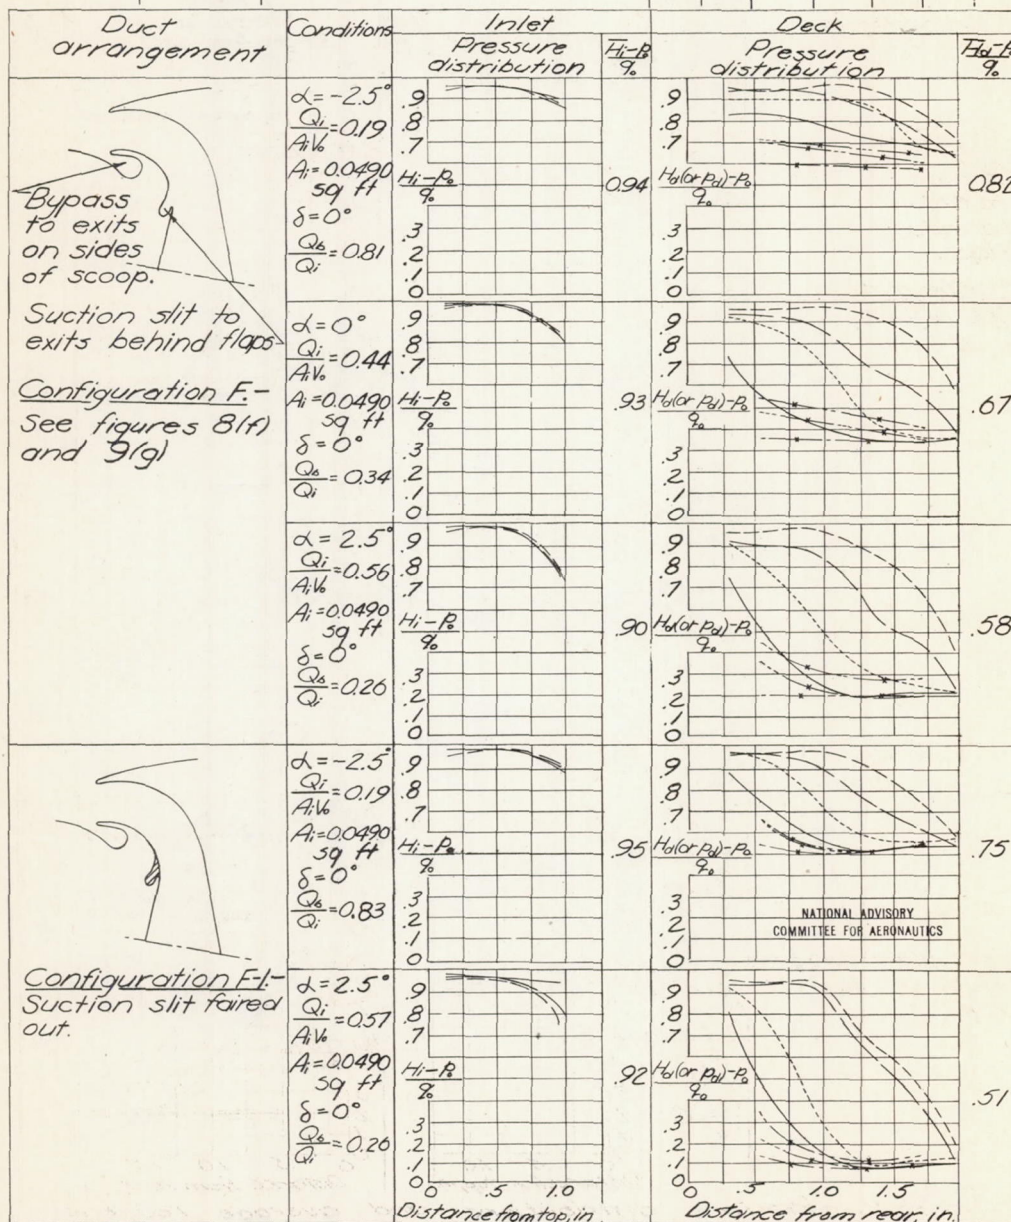 Duct arrangement
Conditions
Inlet
Pressure distribution
H̅i-P₀/q₀
Deck
Pressure distribution
H̅d-P₀/q₀
Bypass
to exits
on sides
of scoop.
Suction slit to
exits behind flaps
Configuration F.-
See figures 8(f)
and 9(g)
α = -2.5°
Qi/AiV₀ = 0.19
Ai = 0.0490
sq ft
δ = 0°
Qb/Qi = 0.81
.9
.8
.7
Hi-P₀/q₀
.3
.2
.1
0
0.94
.9
.8
.7
Hd(or Pd)-P₀/q₀
.3
.2
.1
0
0.82
α = 0°
Qi/AiV₀ = 0.44
Ai = 0.0490
sq ft
δ = 0°
Qb/Qi = 0.34
.9
.8
.7
Hi-P₀/q₀
.3
.2
.1
0
.93
.9
.8
.7
Hd(or Pd)-P₀/q₀
.3
.2
.1
0
.67
α = 2.5°
Qi/AiV₀ = 0.56
Ai = 0.0490
sq ft
δ = 0°
Qb/Qi = 0.26
.9
.8
.7
Hi-P₀/q₀
.3
.2
.1
0
.90
.9
.8
.7
Hd(or Pd)-P₀/q₀
.3
.2
.1
0
.58
Configuration F-1.-
Suction slit faired
out.
α = -2.5°
Qi/AiV₀ = 0.19
Ai = 0.0490
sq ft
δ = 0°
Qb/Qi = 0.83
.9
.8
.7
Hi-P₀/q₀
.3
.2
.1
0
.95
.9
.8
.7
Hd(or Pd)-P₀/q₀
.3
.2
.1
0
NATIONAL ADVISORY
COMMITTEE FOR AERONAUTICS
.75
α = 2.5°
Qi/AiV₀ = 0.57
Ai = 0.0490
sq ft
δ = 0°
Qb/Qi = 0.26
.9
.8
.7
Hi-P₀/q₀
.3
.2
.1
0
.92
.9
.8
.7
Hd(or Pd)-P₀/q₀
.3
.2
.1
0
.51
0 .5 1.0
Distance from top, in.
0 .5 1.0 1.5
Distance from rear, in.